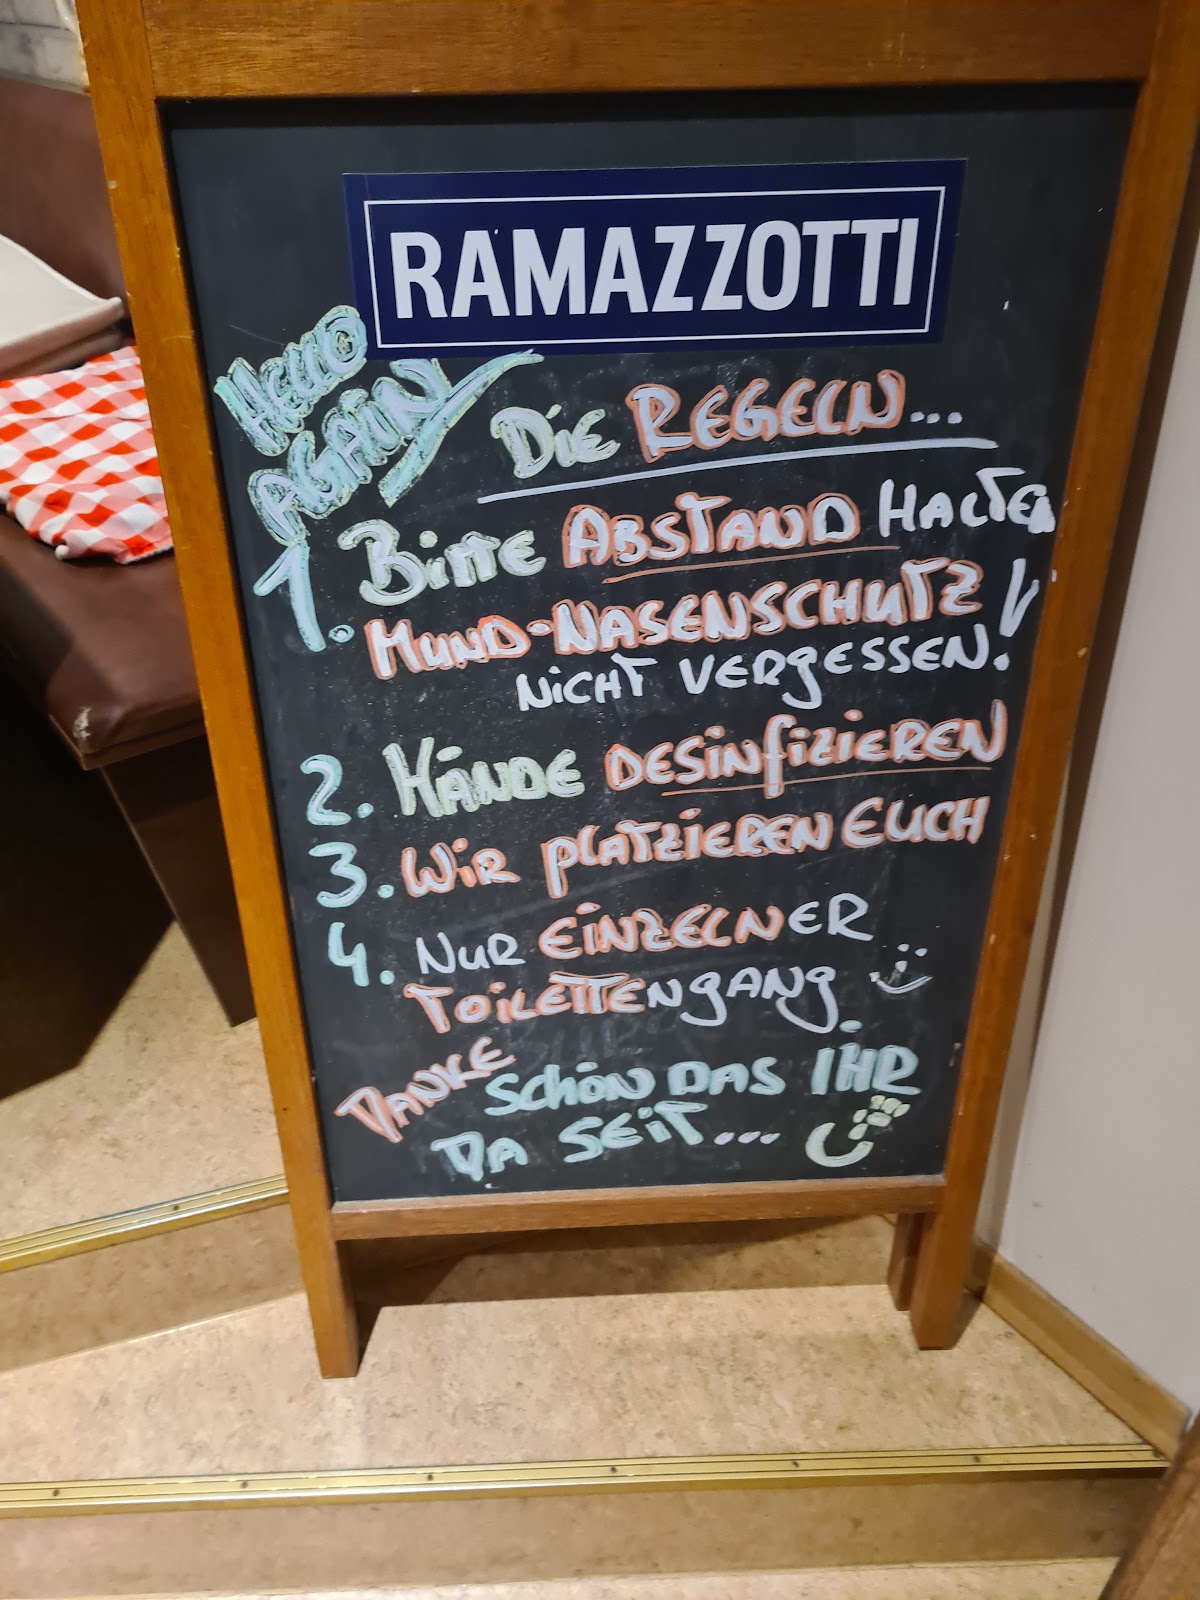 RAMAZZOTTI
HELLO
AGAIN
DIE REGELN...
1. BITTE ABSTAND HALTEN
MUND-NASENSCHUTZ
NICHT VERGESSEN!
2. HÄNDE DESINFIZIEREN
3. WIR PLATZIEREN EUCH
4. NUR EINZELNER
TOILETTENGANG
DANKE
SCHÖN DAS IHR
DA SEIT...